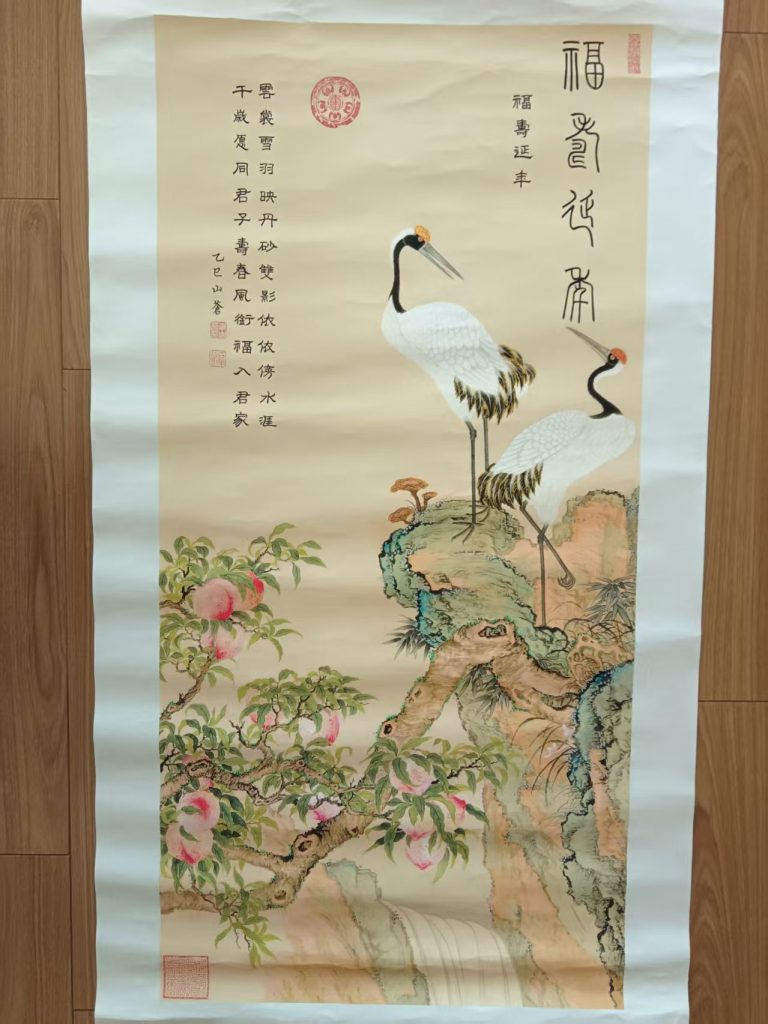 福壽延年
福壽延年
雲裳雪羽映丹砂雙影依依傍水涯
千歲愿同君子壽春風銜福入君家
乙巳山蒼